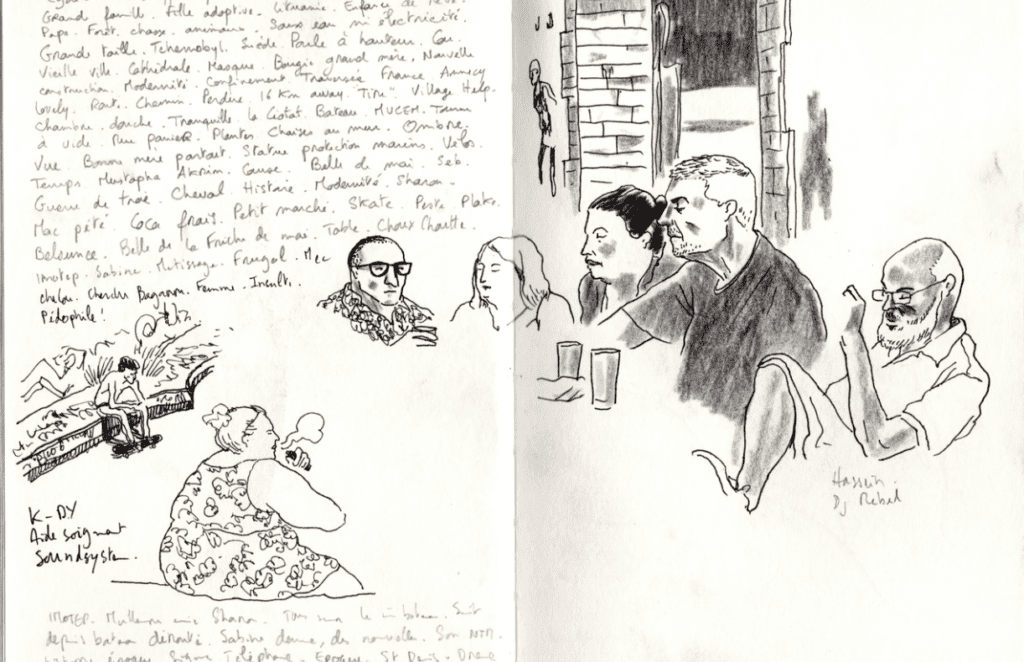 Grand famille. Fille adoptive. Lituanie. Enfance de rêve.
Papa. Forêt. chasse. animaux. Sans eau ni électricité.
Grande taille. Tchernobyl. Suède. Parle à hauteur. Cou.
Vieille ville. Cathédrale. Masque. Bougie grand mère. Nouvelle
construction. Modernité. Confinement. Traversée France. Annecy
lovely. Route. Chemin. Perdue. 16 Km away. "Tiru". Village Help.
Chambre. douche. Tranquille. La Ciotat. Bateau. MUCEM.
à vide. Rue panier. Plantes Chaises au mur. Ombre.
Vue. Bonne mère partout. Statue protection marins. Vélos.
Temps. Mustapha Akrim. Cause. Belle de mai. Seb.
Guerre de troie. Cheval. Histoire. Modernité. Sharon.
Mac pété. Coca frais. Petit marché. Skate. Peste. Plato.
Belsunce. Belle de la Friche de mai. Table. Choux Chouette.
Imotep. Sabine. Métissage. Frugal. Mec
chelou. Cherche Buganon. Femme. Insulte.
Pédophile!
K-DY
Aide soignant
Soundsystem.
Hassein.
Dj Rebel
IMOTEP. Sharon. Tous sur le bateau. Suit
depuis bateau dérouté. Sabine donne des nouvelles. Son NTM.
époque. Signe Téléphone. Epoque. St Denis.